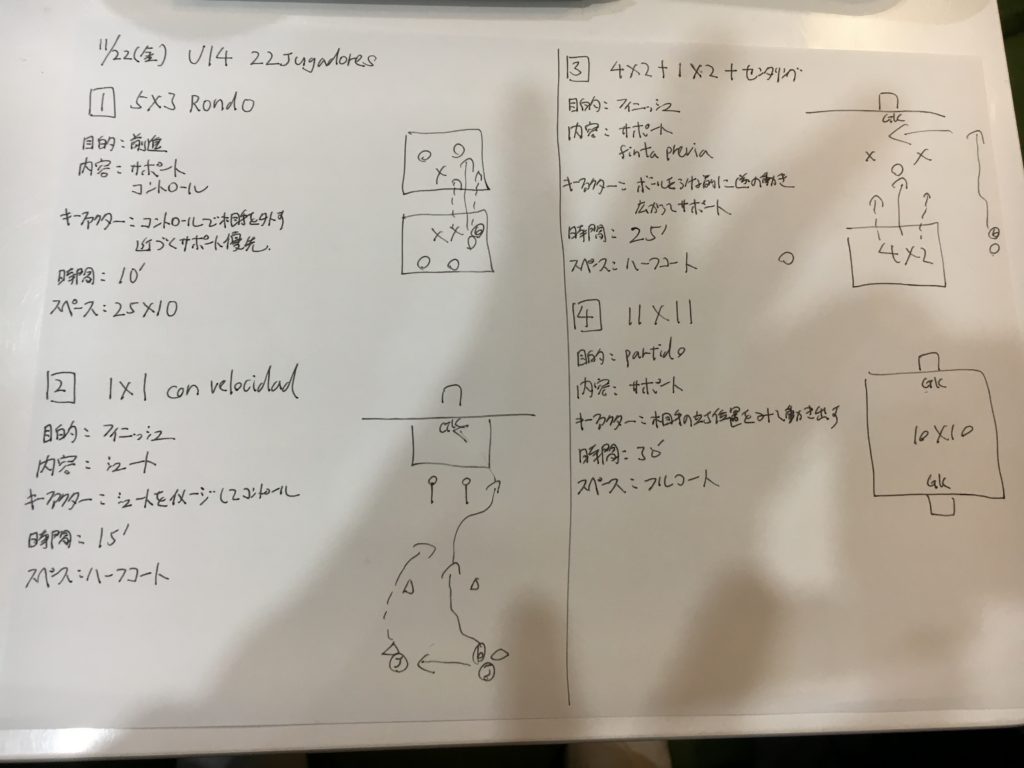 11/22(金) U14 22Jugadores
1 5X3 Rondo
目的：前進
内容：サポート
コントロール
キーファクター：コントロールで相手を外す
近づくサポート優先.
時間：10′
スペース：25X10
2 1X1 con velocidad
目的：フィニッシュ
内容：シュート
キーファクター：シュートをイメージしてコントロール
時間：15′
スペース：ハーフコート
GK
3 4X2+1X2+センタリング
目的：フィニッシュ
内容：サポート
finta previa
キーファクター：ボールをもらう前に逆の動き
広がってサポート
時間：25′
スペース：ハーフコート
GK
4X2
4 11X11
目的：partido
内容：サポート
キーファクター：相手の立ち位置をみて動き出す
時間：30′
スペース：フルコート
GK
10X10
GK